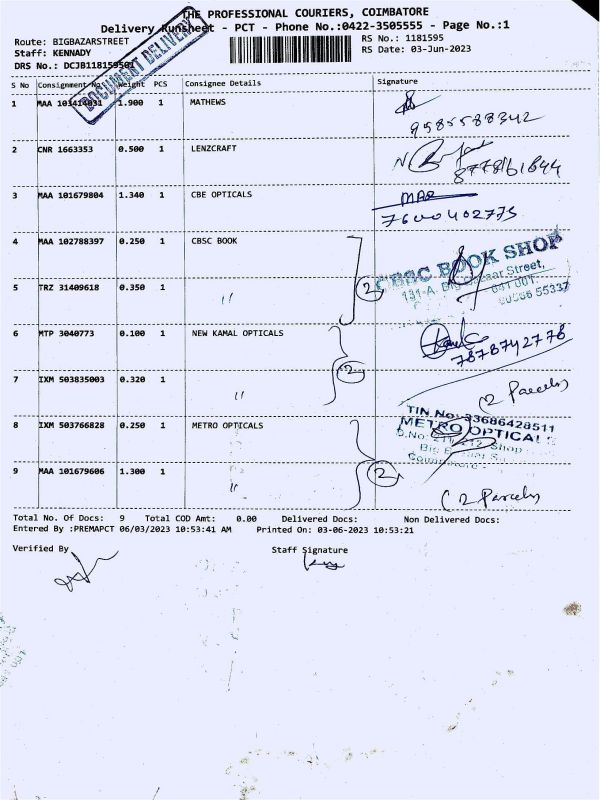 THE PROFESSIONAL COURIERS, COIMBATORE
Delivery Runsheet - PCT - Phone No.:0422-3505555 - Page No.:1
Route: BIGBAZARSTREET
RS No.: 1181595
Staff: KENNADY
RS Date: 03-Jun-2023
DRS No.: DCJB1181595
DOCUMENT DELIVERY
S No Consignment No. Weight PCS Consignee Details Signature
1 MAA 103414031 1.900 1 MATHEWS
9585588342
2 CNR 1663353 0.500 1 LENZCRAFT
3 MAA 101679804 1.340 1 CBE OPTICALS
7600402775
4 MAA 102788397 0.250 1 CBSC BOOK
2
CBSC BOOK SHOP
131-A, Street,
641 001.
5 TRZ 31409618 0.350 1 "
6 MTP 3040773 0.100 1 NEW KAMAL OPTICALS
7878742778
2
7 IXM 503835003 0.320 1 "
(2 Parcels)
8 IXM 503766828 0.250 1 METRO OPTICALS
TIN No: 33686428511
METRO OPTICALS
2
9 MAA 101679606 1.300 1 "
(2 Parcels)
Total No. Of Docs: 9 Total COD Amt: 0.00 Delivered Docs: Non Delivered Docs:
Entered By :PREMAPCT 06/03/2023 10:53:41 AM Printed On: 03-06-2023 10:53:21
Verified By
Staff Signature